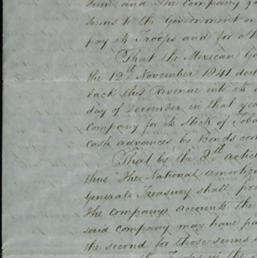 sum and the Company g
sums to the Government o
pay its Troops and for ot
That the Mexican Go
the 12th November 1841 dec
back this Revenue into its
day of December in that yea
Company for its Stock of Toba
cash advances by bonds
That by the 8th artic
thus "The National amortiza
General Treasury shall pro
the Companys account the
said company may have pa
the second for those sums